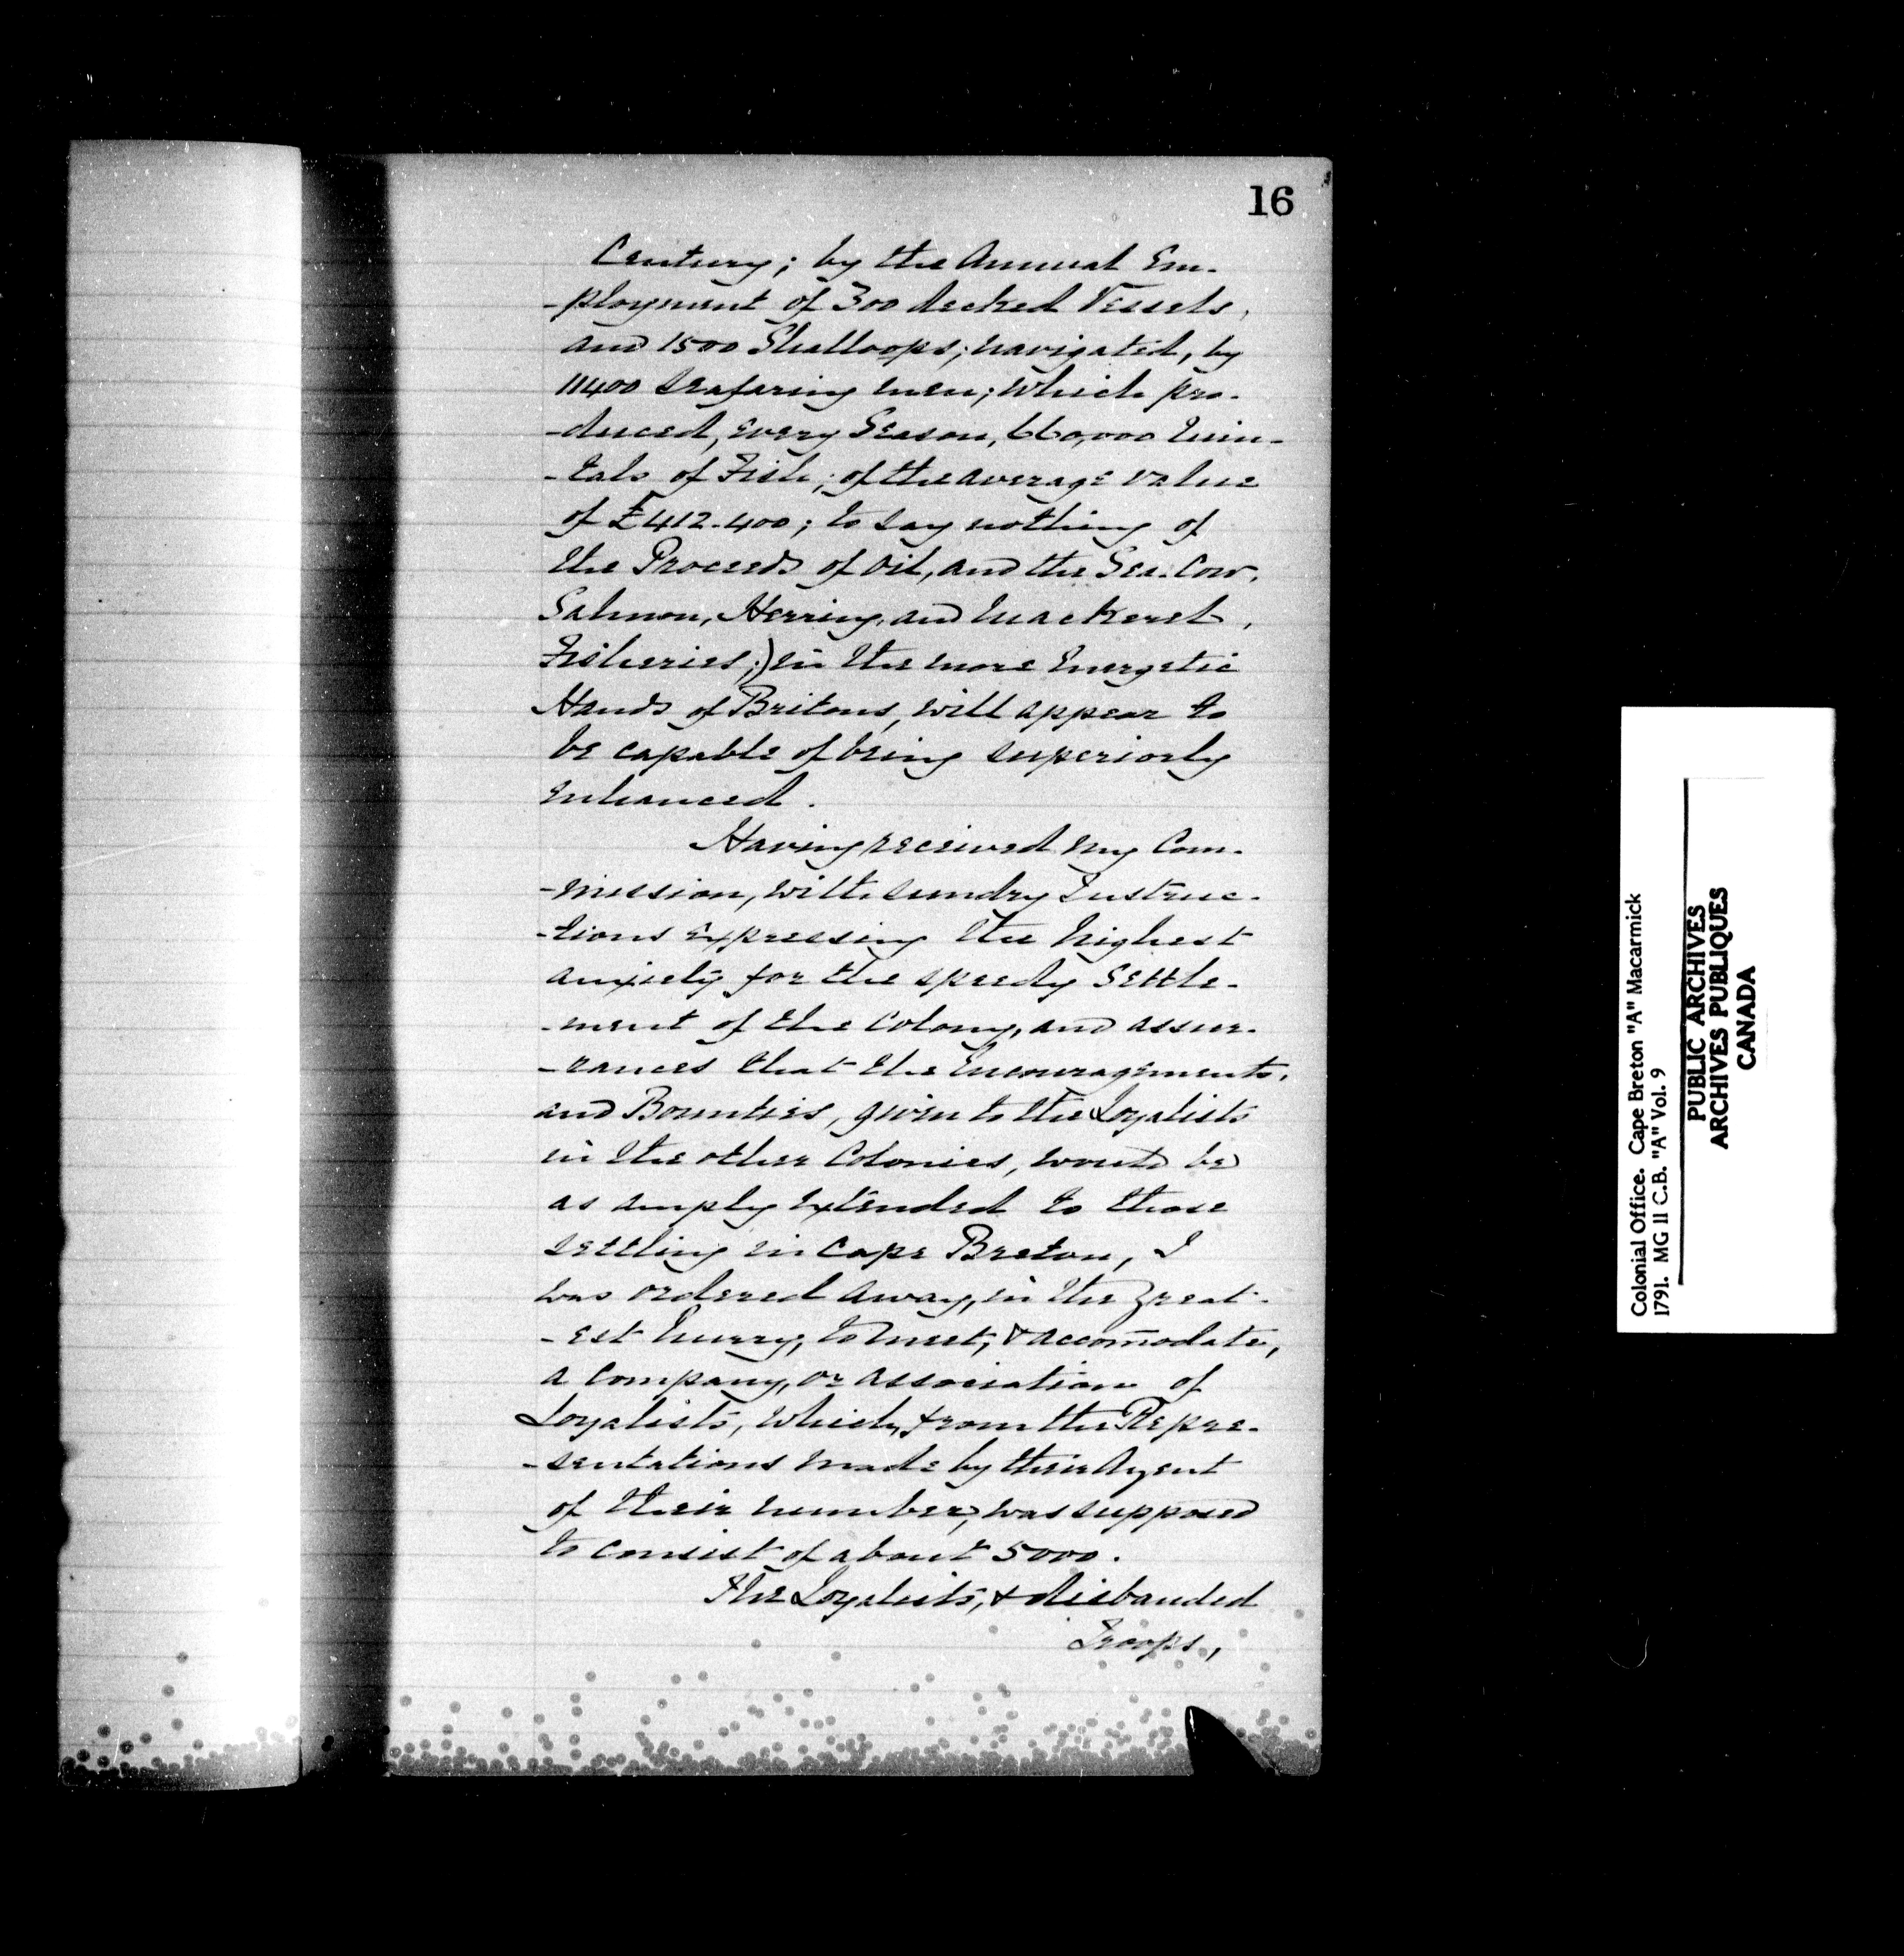 16
Century; by the Annual Em-
-ployment of 300 decked Vessels,
and 1500 Shalloops; navigated, by
11400 seafaring men; which pro-
-duced, every Season, 660,000 Quin-
-tals of Fish; of the average value
of £412.400; to say nothing of
the Proceeds of oil, and the Sea-Cow,
Salmon, Herring, and Mackerel,
Fisheries;) in the more Energetic
Hands of Britons, will appear to
be capable of being superiorly
enhanced.
Having received my Com-
-mission, with sundry Instruc-
-tions expressing the highest
anxiety for the speedy Settle-
-ment of the Colony, and assur-
-rances that the Encouragements,
and Bounties, given to the Loyalists
in the other Colonies, would be
as amply extended to those
settling in Cape Breton, I
was ordered away, in the great-
-est hurry, to meet, & accomodate,
a Company, or association of
Loyalists, which, from the Repre-
-sentations made by their Agent
of their number, was supposed
to consist of about 5000.
The Loyalists, & disbanded
Troops,
Colonial Office. Cape Breton "A" Macarmick
1791. MG 11 C.B. "A" Vol. 9
PUBLIC ARCHIVES
ARCHIVES PUBLIQUES
CANADA